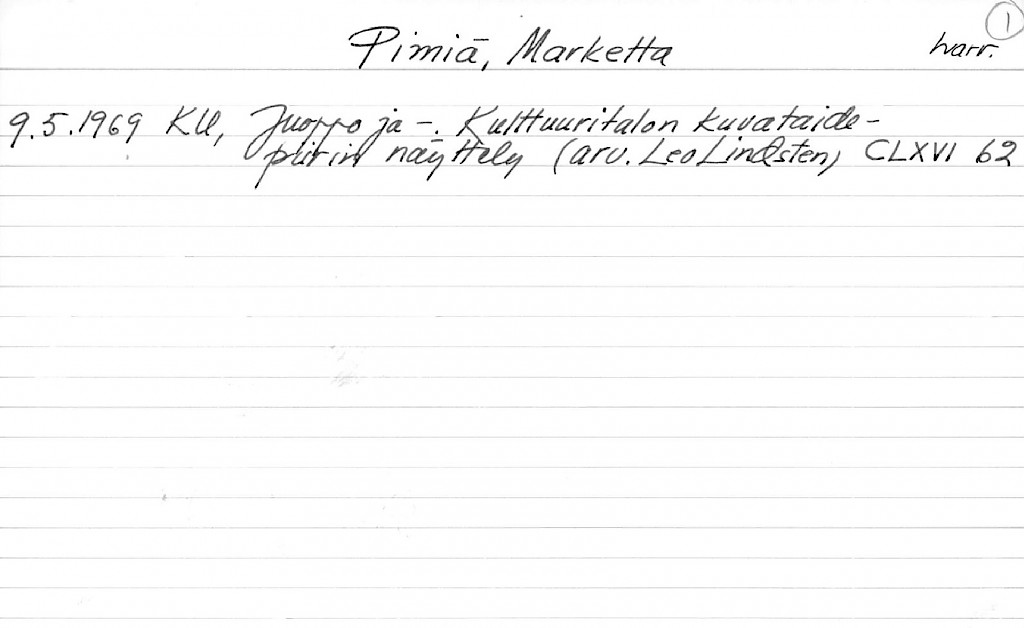 1
Pimiä, Marketta harr.
9.5.1969 KU, Juoppo ja -. Kulttuuritalon kuvataide-
piirin näyttely (arv. Leo Lindsten) CLXVI 62